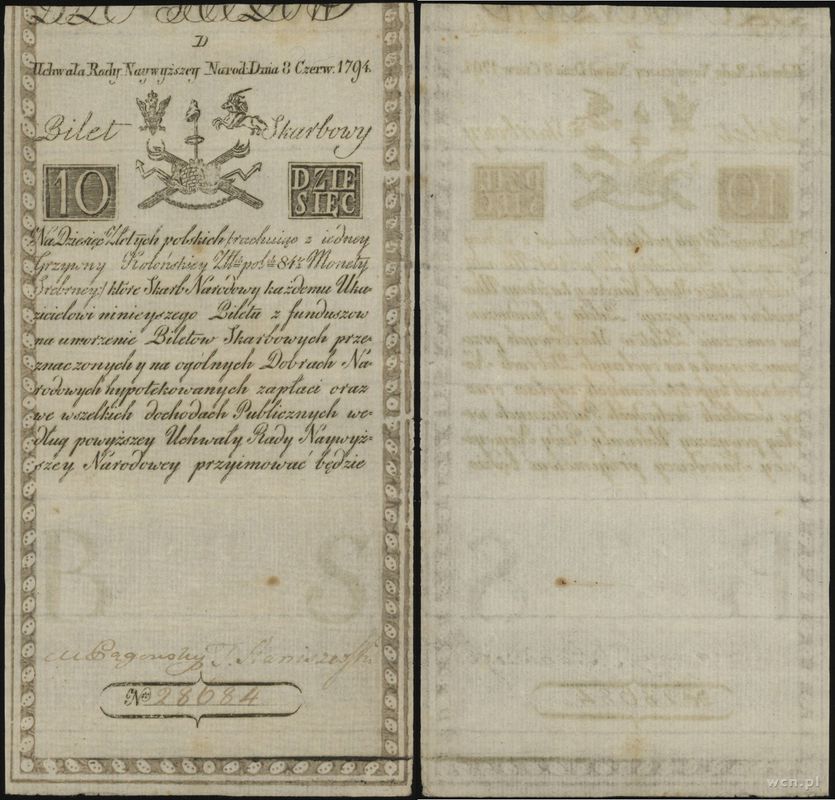 D
Uchwała Rady Naywyższey Narod: Dnia 8 Czerw. 1794.
Bilet Skarbowy
10 DZIE
SIĘC
Na Dziesięć Złotych polskich rachuiąc z iedney
Grzywny Kolońskiey Złł: pol: 84½ Monety
Srebrney/ które Skarb Narodowy każdemu Uka-
zicielowi ninieyszego Biletu z funduszow
na umorzenie Biletow Skarbowych prze-
znaczonych y na ogólnych Dobrach Na-
rodowych hypotekowanych zapłaci oraz
we wszelkich dochodach Publicznych we-
dług powyższey Uchwały Rady Naywyż-
szey Narodowey przyimować będzie
B S
T. Staniszewski
No 28684
wcn.pl